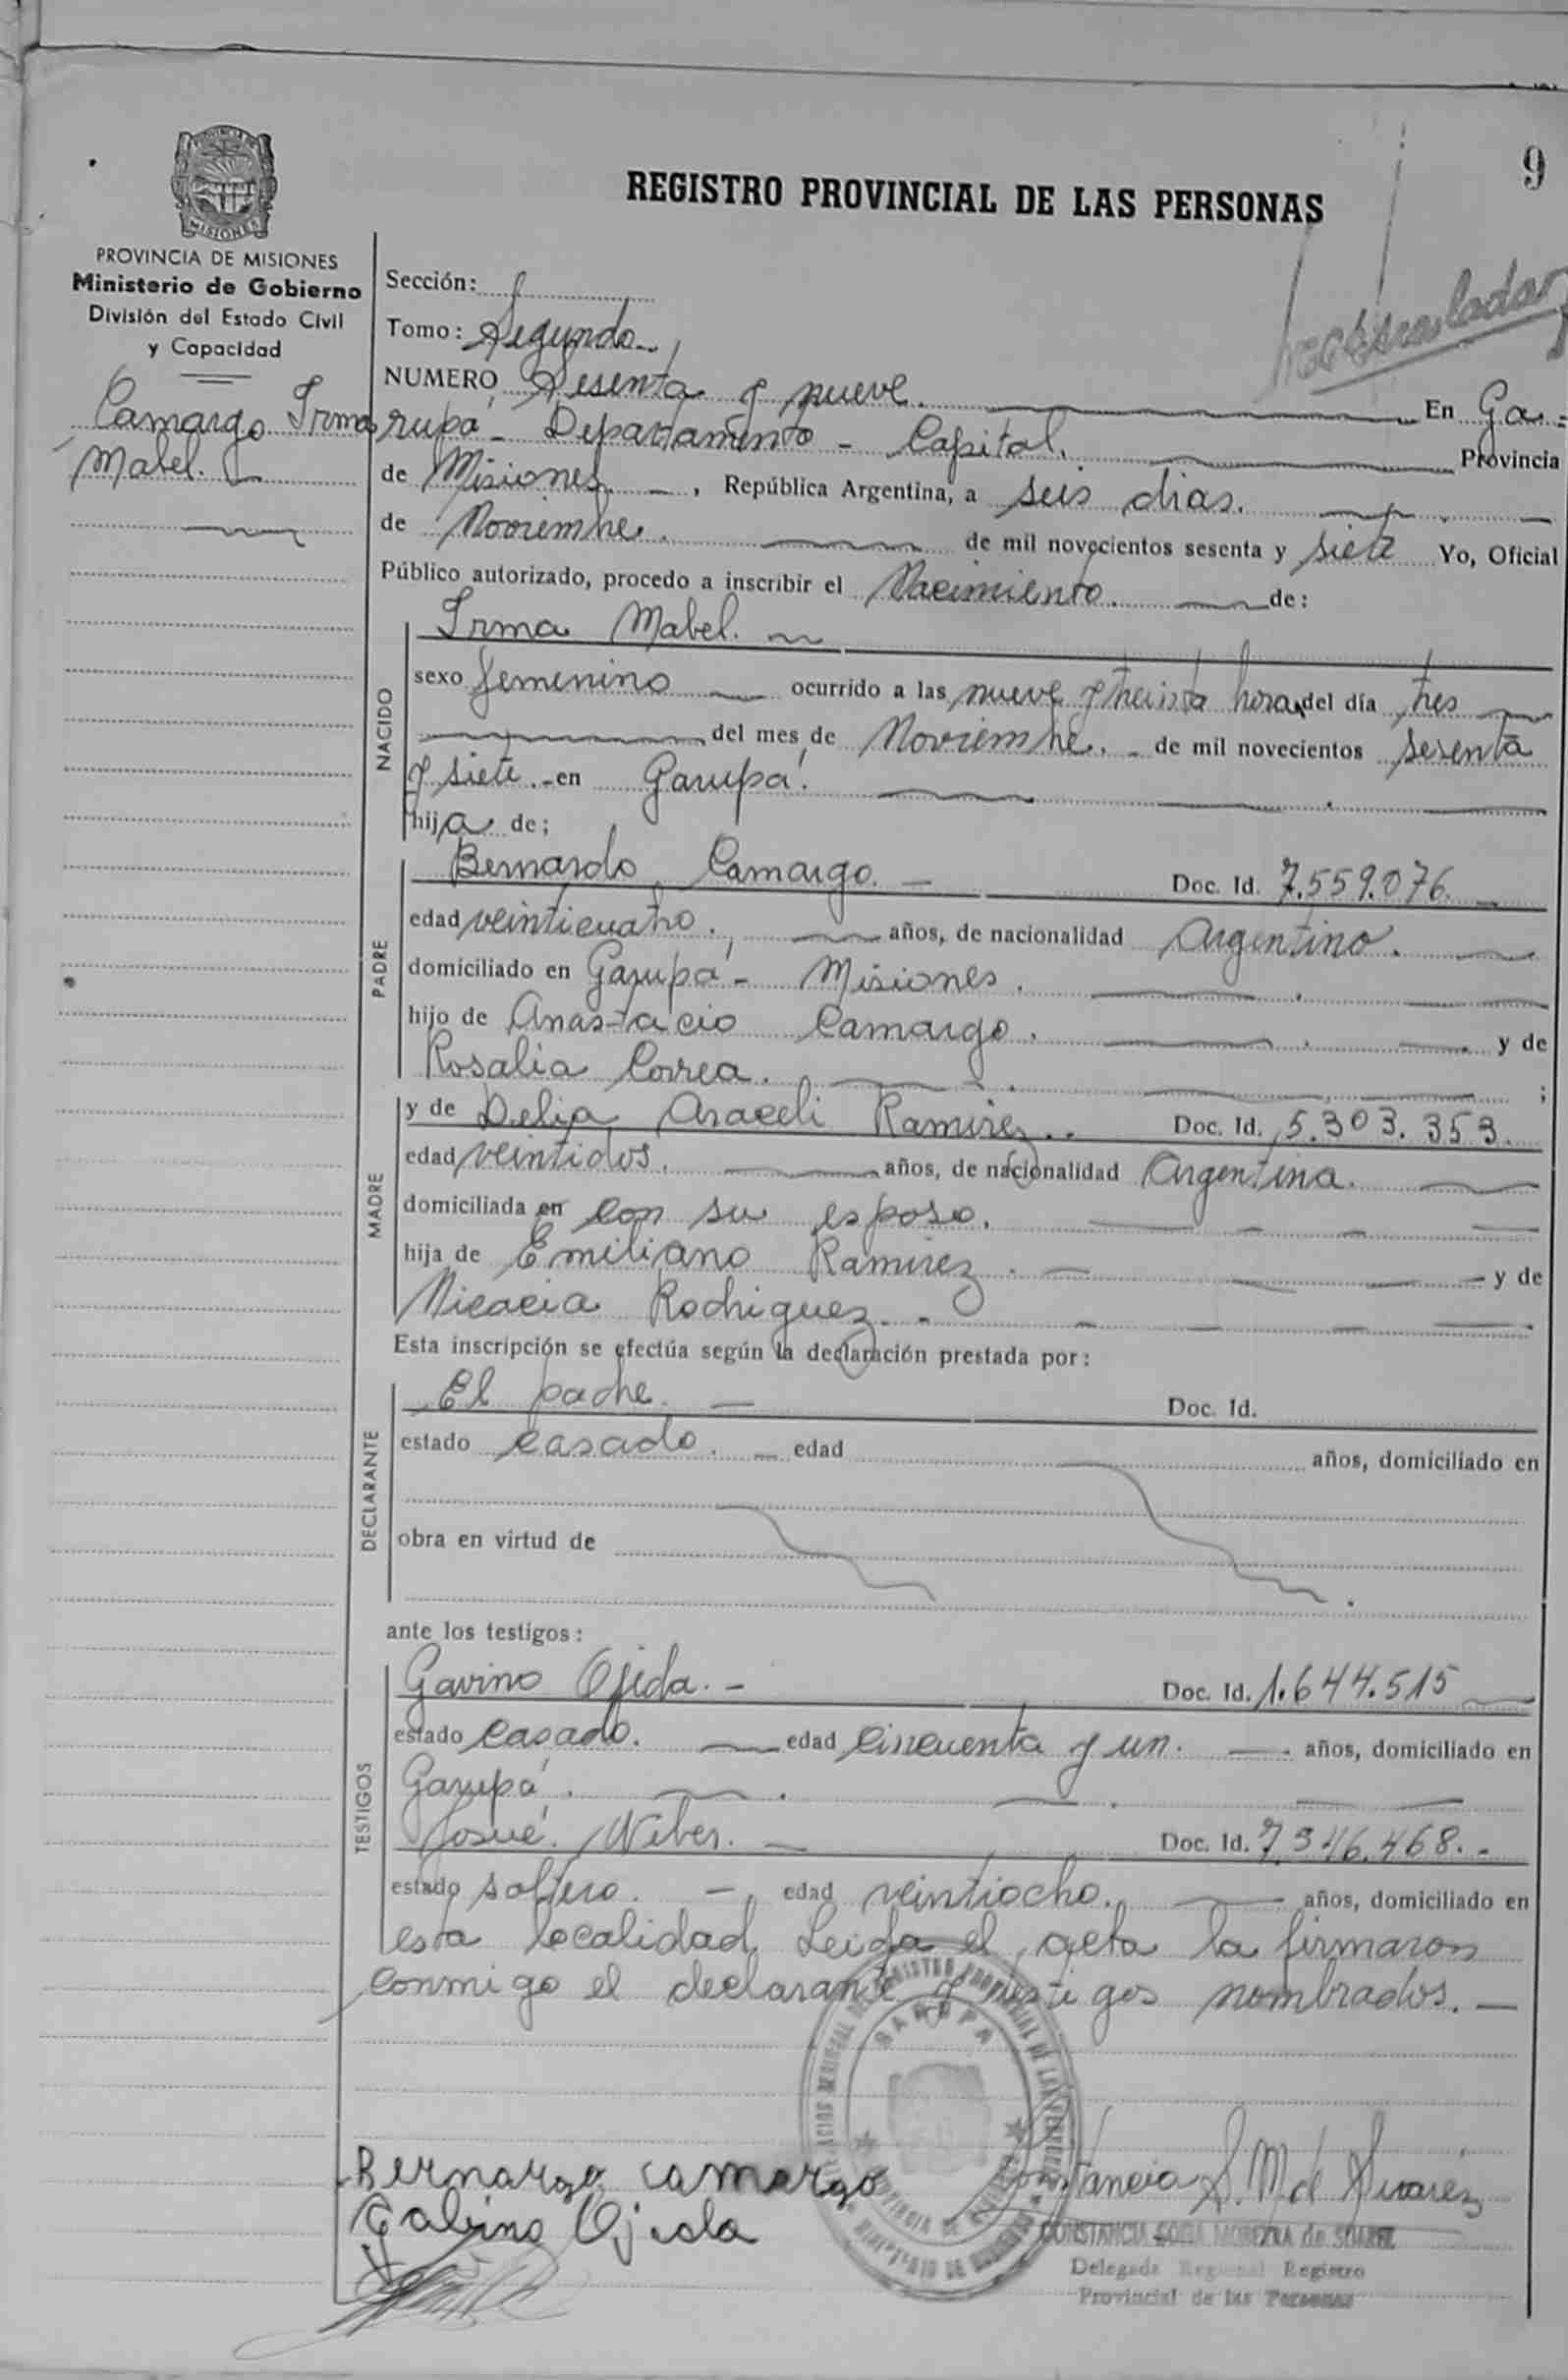 9
REGISTRO PROVINCIAL DE LAS PERSONAS
PROVINCIA DE MISIONES
MISIONES
PROVINCIA DE MISIONES
Ministerio de Gobierno
División del Estado Civil
y Capacidad
Camargo Irma
Mabel.
Sección:
Tomo: Segundo
NUMERO Sesenta y nueve. En Ga=
rupá - Departamento - Capital. Provincia
de Misiones. - , República Argentina, a seis dias.
de Noviembre. de mil novecientos sesenta y siete Yo, Oficial
Público autorizado, procedo a inscribir el Nacimiento. de:
NACIDO
Irma Mabel.
sexo femenino ocurrido a las nueve y treinta horas del día tres
del mes de Noviembre. - de mil novecientos sesenta
y siete. - en Garupá.
hija de;
PADRE
Bernardo Camargo. - Doc. Id. 7.559.076.
edad veinticuatro. años, de nacionalidad Argentino.
domiciliado en Garupá - Misiones.
hijo de Anastacio Camargo. y de
Rosalia Correa. ;
MADRE
y de Delia Araceli Ramirez. - Doc. Id. 5.303.353.
edad veintidos. años, de nacionalidad Argentina.
domiciliada en con su esposo.
hija de Emiliano Ramirez. - y de
Nicacia Rodriguez. -
Esta inscripción se efectúa según la declaración prestada por:
DECLARANTE
El padre. - Doc. Id.
estado casado. - edad años, domiciliado en
obra en virtud de
ante los testigos:
TESTIGOS
Gavino Ojeda. - Doc. Id. 1.644.515
estado casado. edad cincuenta y un. - años, domiciliado en
Garupá.
Josué Weber. - Doc. Id. 7.346.468. -
estado soltero. - edad veintiocho. años, domiciliado en
esta localidad. Leida el acta la firmaron
conmigo el declarante y testigos nombrados. -
GARUPA
Bernargo camargo
Gabino Ojeda
Constancia S. M. de Suarez
CONSTANCIA SOCIA MOREYRA de SUAREZ
Delegada Regional Registro
Provincial de las Personas